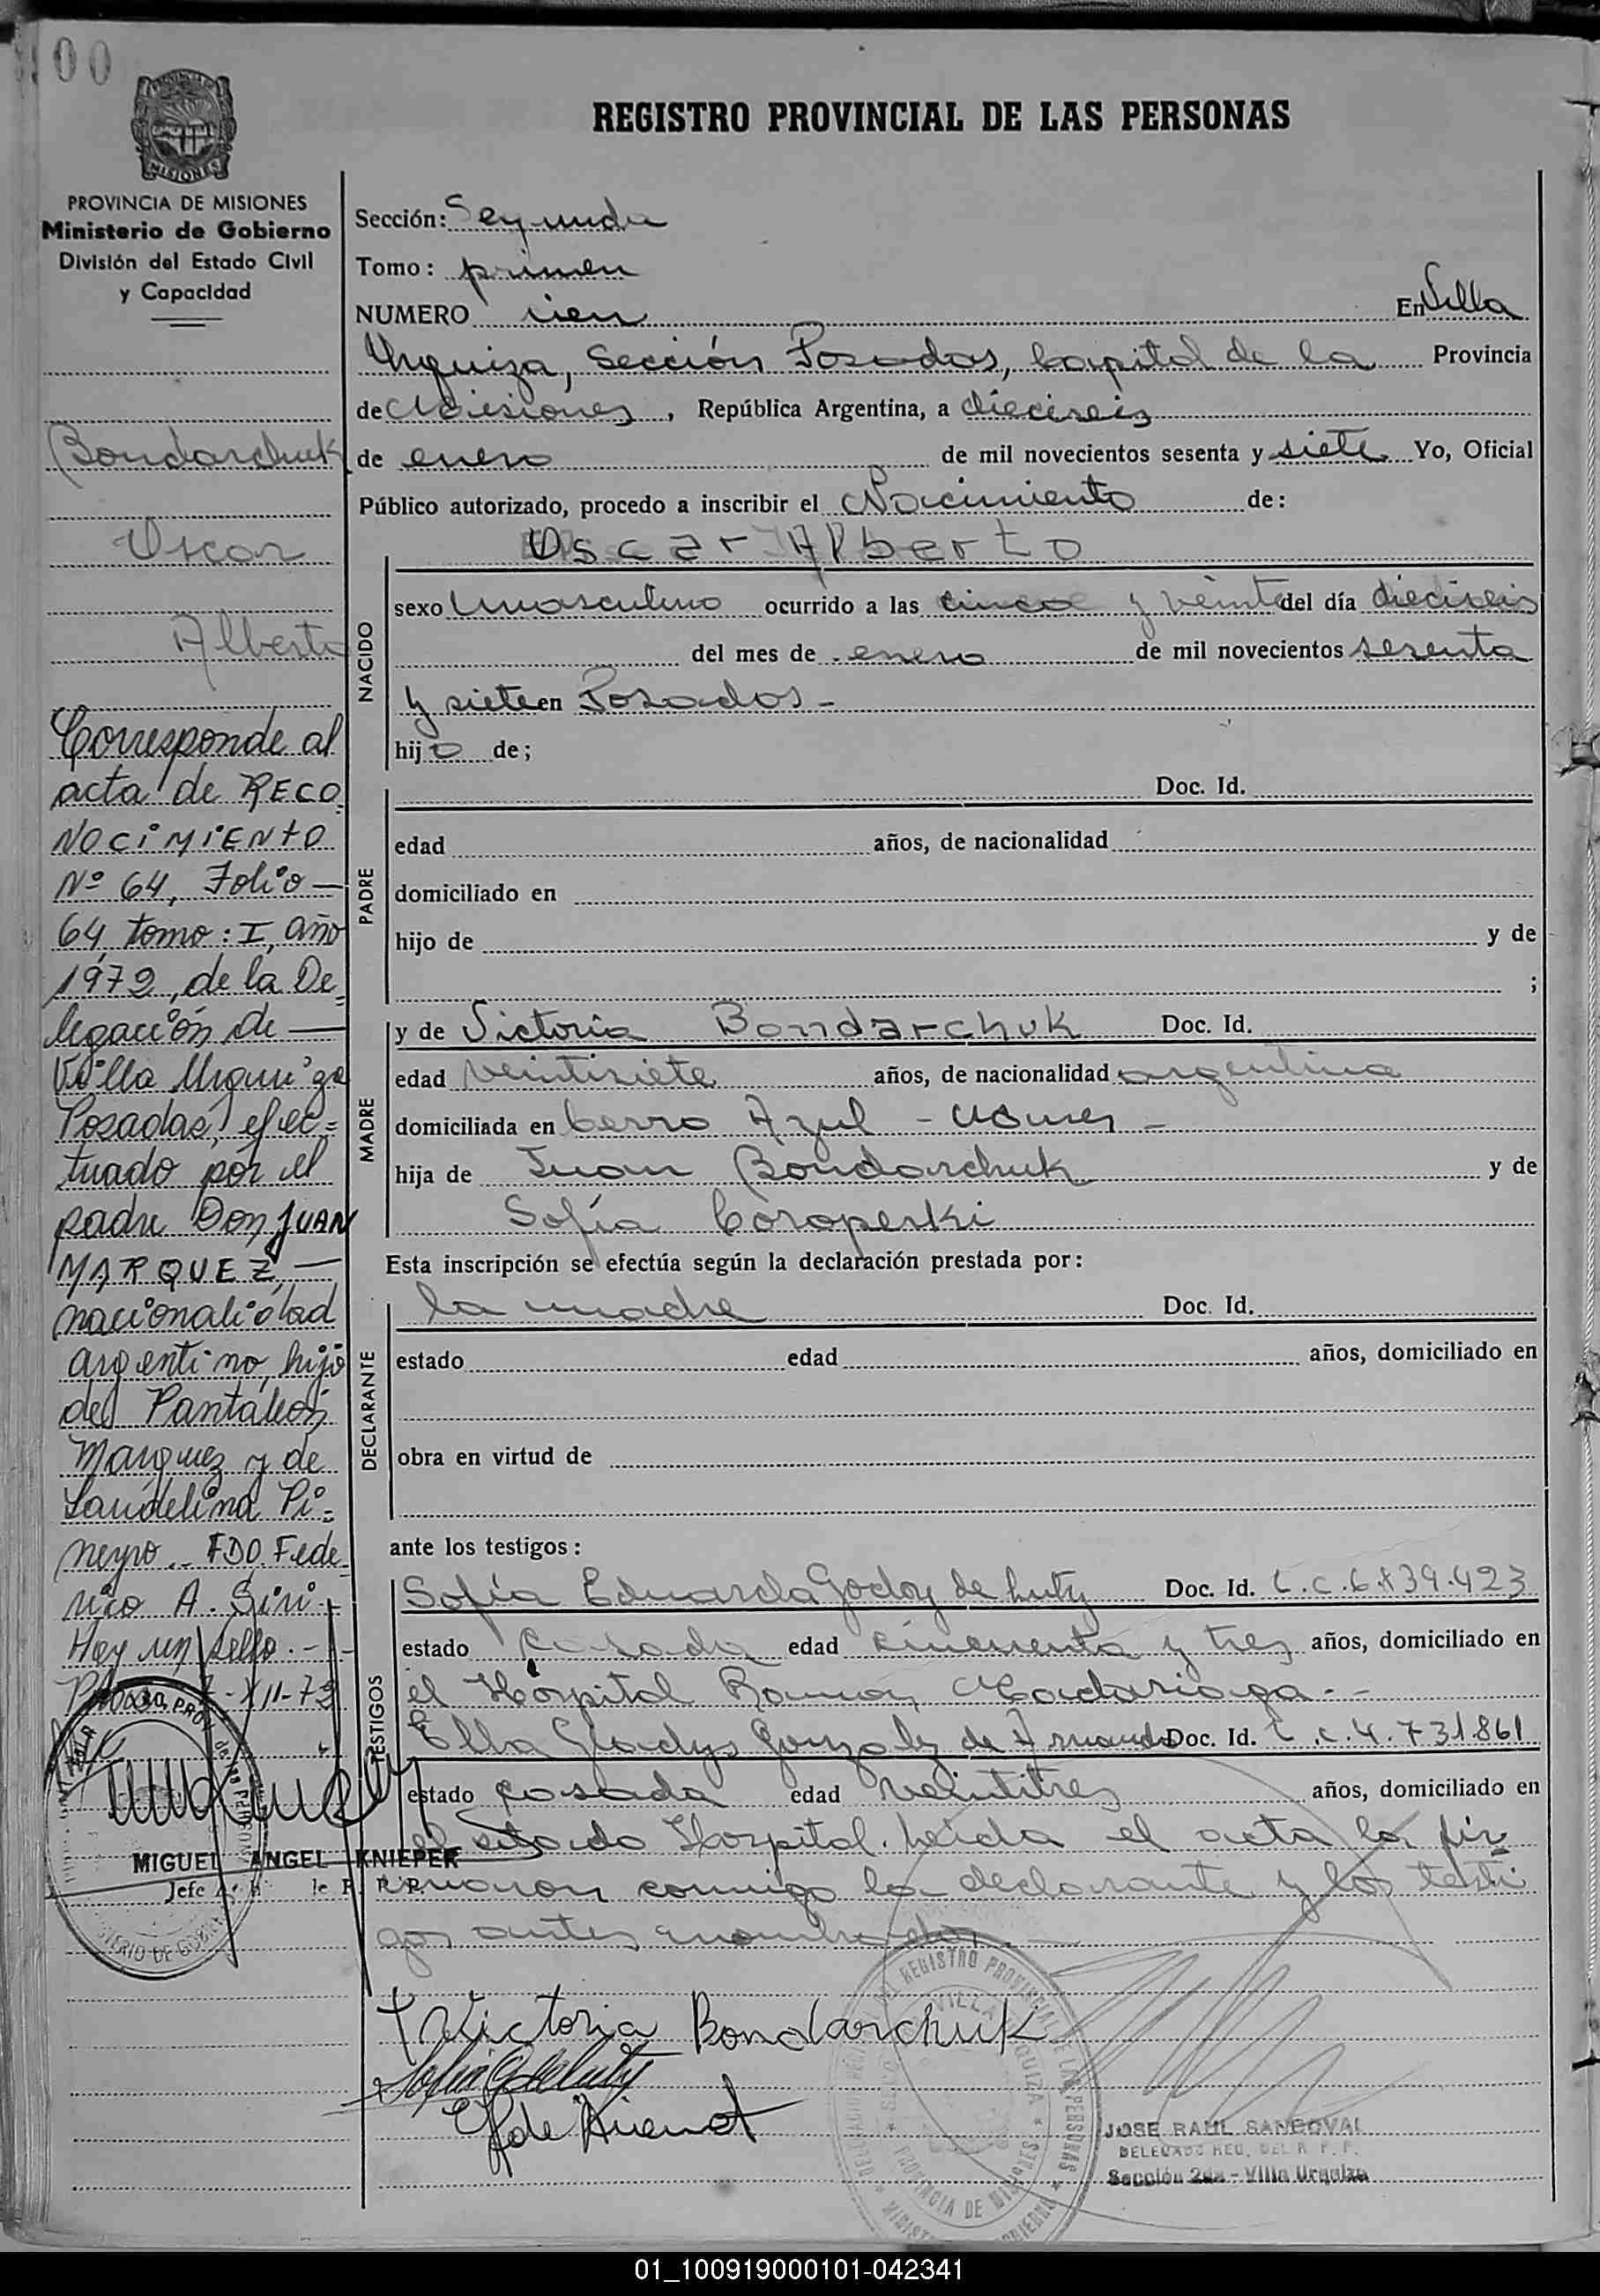 00
MISIONES
PROVINCIA DE MISIONES
Ministerio de Gobierno
División del Estado Civil
y Capacidad
Bondarchuk
Oscar
Alberto
Corresponde al
acta de RECO
NOCIMIENTO
Nº 64, Folio —
64, tomo: I, año
1972, de la De=
legación de —
Villa Urquiza
Posadas, efec=
tuado por el
padre Don JUAN
MARQUEZ, —
nacionalidad
argentino, hijo
de Pantaleón
Marquez y de
Laudelina Pi=
neyro.. FDO. Fede
rico A. Sini.-
Hay un sello.-
7-XII-72
MIGUEL ANGEL KNIEPER
Jefe
REGISTRO PROVINCIAL DE LAS PERSONAS
Sección: Segunda
Tomo: primero
NUMERO cien En Villa
Urquiza, Sección Posadas, Capital de la Provincia
de Misiones, República Argentina, a dieciseis
de enero de mil novecientos sesenta y siete Yo, Oficial
Público autorizado, procedo a inscribir el Nacimiento de:
Oscar Alberto
NACIDO
sexo masculino ocurrido a las cinco y veinte del día dieciseis
del mes de enero de mil novecientos sesenta
y siete en Posadas -
hijo de;
PADRE
Doc. Id.
edad años, de nacionalidad
domiciliado en
hijo de y de
;
MADRE
y de Victoria Bondarchuk Doc. Id.
edad veintisiete años, de nacionalidad argentina
domiciliada en Cerro Azul - Mnes -
hija de Juan Bondarchuk y de
Sofía Coroperki
Esta inscripción se efectúa según la declaración prestada por:
DECLARANTE
la madre Doc. Id.
estado edad años, domiciliado en
obra en virtud de
ante los testigos:
TESTIGOS
Sofía Eduarda Godoy de Luty Doc. Id. L.C.6.839.423
estado casada edad cincuenta y tres años, domiciliado en
el Hospital Ramon Madariaga.-
Elba Gladys Gonzalez de Doc. Id. L.C.4.731.861
estado casada edad veintitres años, domiciliado en
el citado Hospital. Leida el acta la fir
maron conmigo la declarante y los testi
gos antes nombrados.-
Victoria Bondarchuk
DEL REGISTRO PROVINCIAL DE LAS PERSONAS
VILLA URQUIZA
PROVINCIA DE MISIONES
JOSE RAUL SANDOVAL
DELEGADO REG. DEL R. P. P.
Sección 2da - Villa Urquiza
01_100919000101-042341